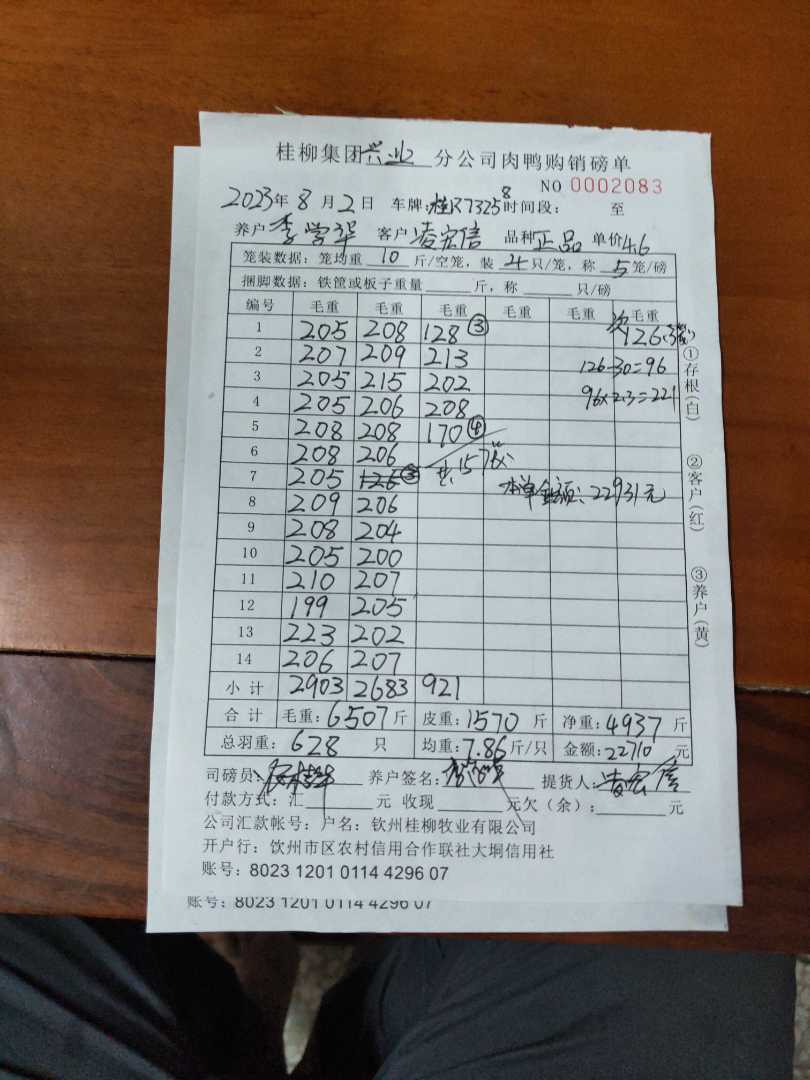 桂柳集团兴业分公司肉鸭购销磅单
NO 0002083
2023年 8 月 2 日 车牌:桂R73258 时间段: 至
养户 李学华 客户 凌宏信 品种 正品 单价 4.6
笼装数据:笼均重 10 斤/空笼,装 4 只/笼,称 5 笼/磅
捆脚数据:铁筐或板子重量 斤,称 只/磅
编号 毛重 毛重 毛重 毛重 毛重 次 毛重
1 205 208 128③ 126(3笼)
2 207 209 213 126-30=96
3 205 215 202 96×2.3=221
4 205 206 208
5 208 208 170④
6 208 206 共:157笼
7 205 126③ 本单金额:22931元
8 209 206
9 208 204
10 205 200
11 210 207
12 199 205
13 223 202
14 206 207
小计 2903 2683 921
合计 毛重:6507斤 皮重:1570 斤 净重:4937 斤
总羽重:628 只 均重:7.86斤/只 金额:22710 元
司磅员: 养户签名: 提货人:凌宏信
付款方式:汇 元 收现 元欠(余): 元
公司汇款帐号:户名:钦州桂柳牧业有限公司
开户行:钦州市区农村信用合作联社大垌信用社
账号:8023 1201 0114 4296 07
账号:8023 1201 0114 4296 07
①存根(白)
②客户(红)
③养户(黄)